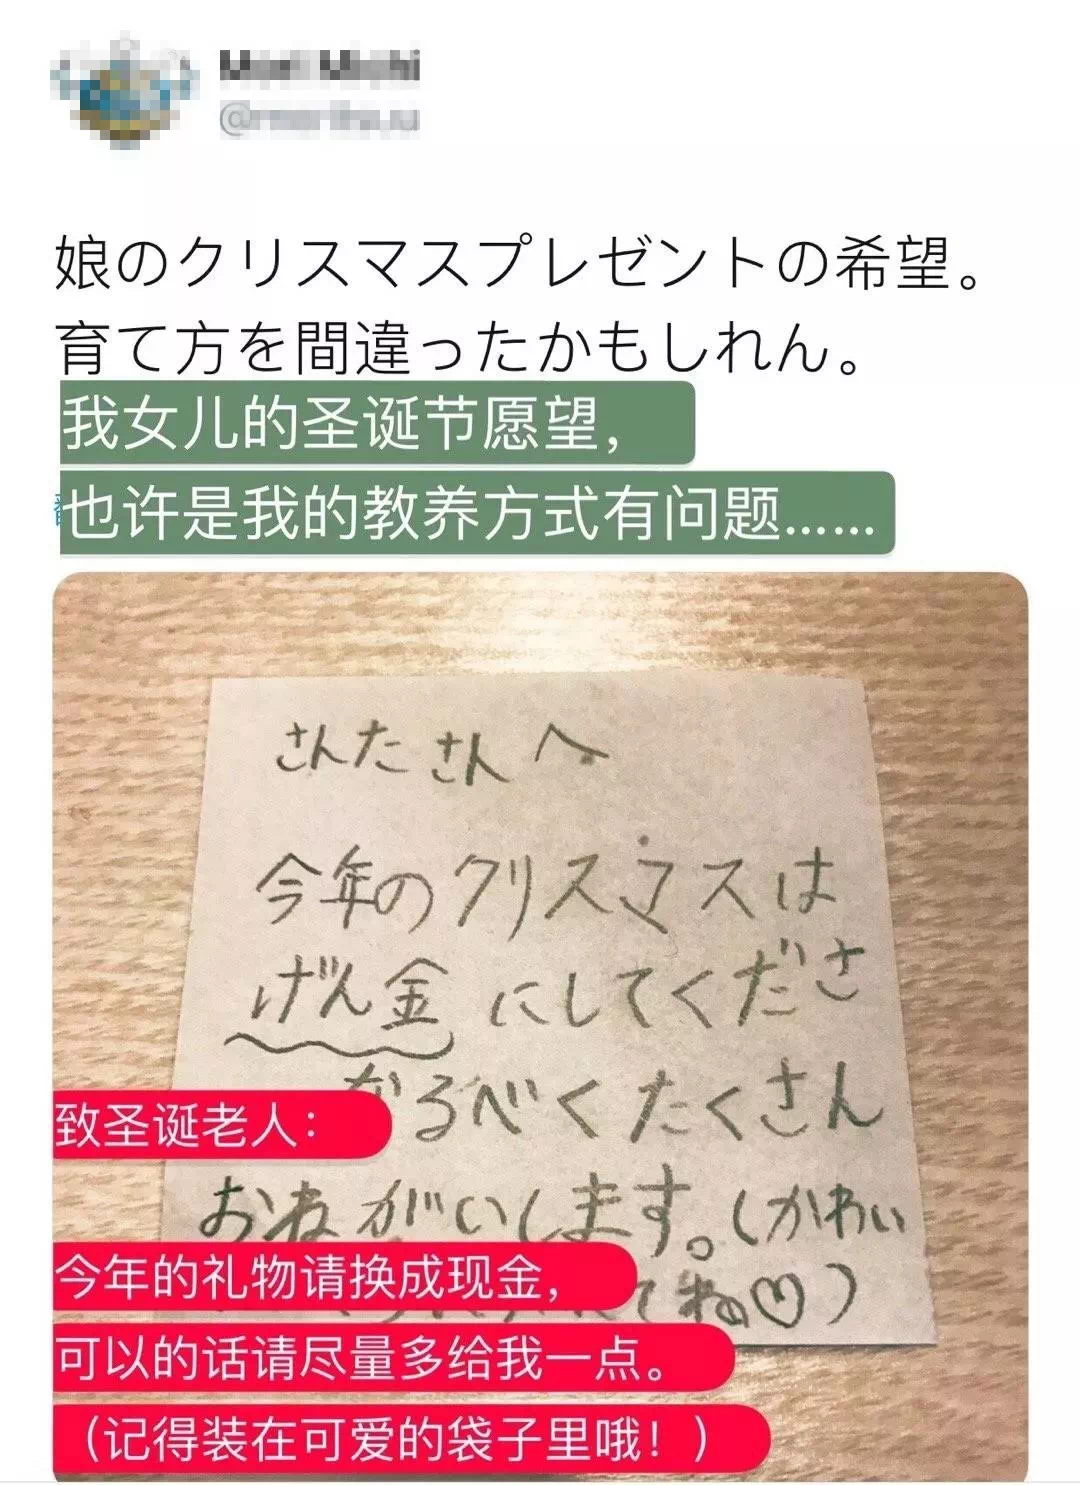 娘のクリスマスプレゼントの希望。
育て方を間違ったかもしれん。
我女儿的圣诞节愿望，
也许是我的教养方式有问题……
さんたさんへ
今年のクリスマスは
げん金にしてくださ
なるべくたくさん
おねがいします。(かわい
てね♡)
致圣诞老人：
今年的礼物请换成现金，
可以的话请尽量多给我一点。
（记得装在可爱的袋子里哦！）